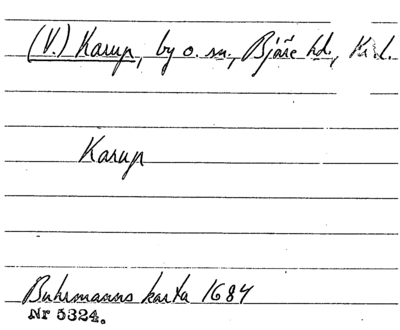 (V.) Karup, by o. sn., Bjäre hd., Kr. l.
Karup
Buhrmanns karta 1684
Nr 5324.